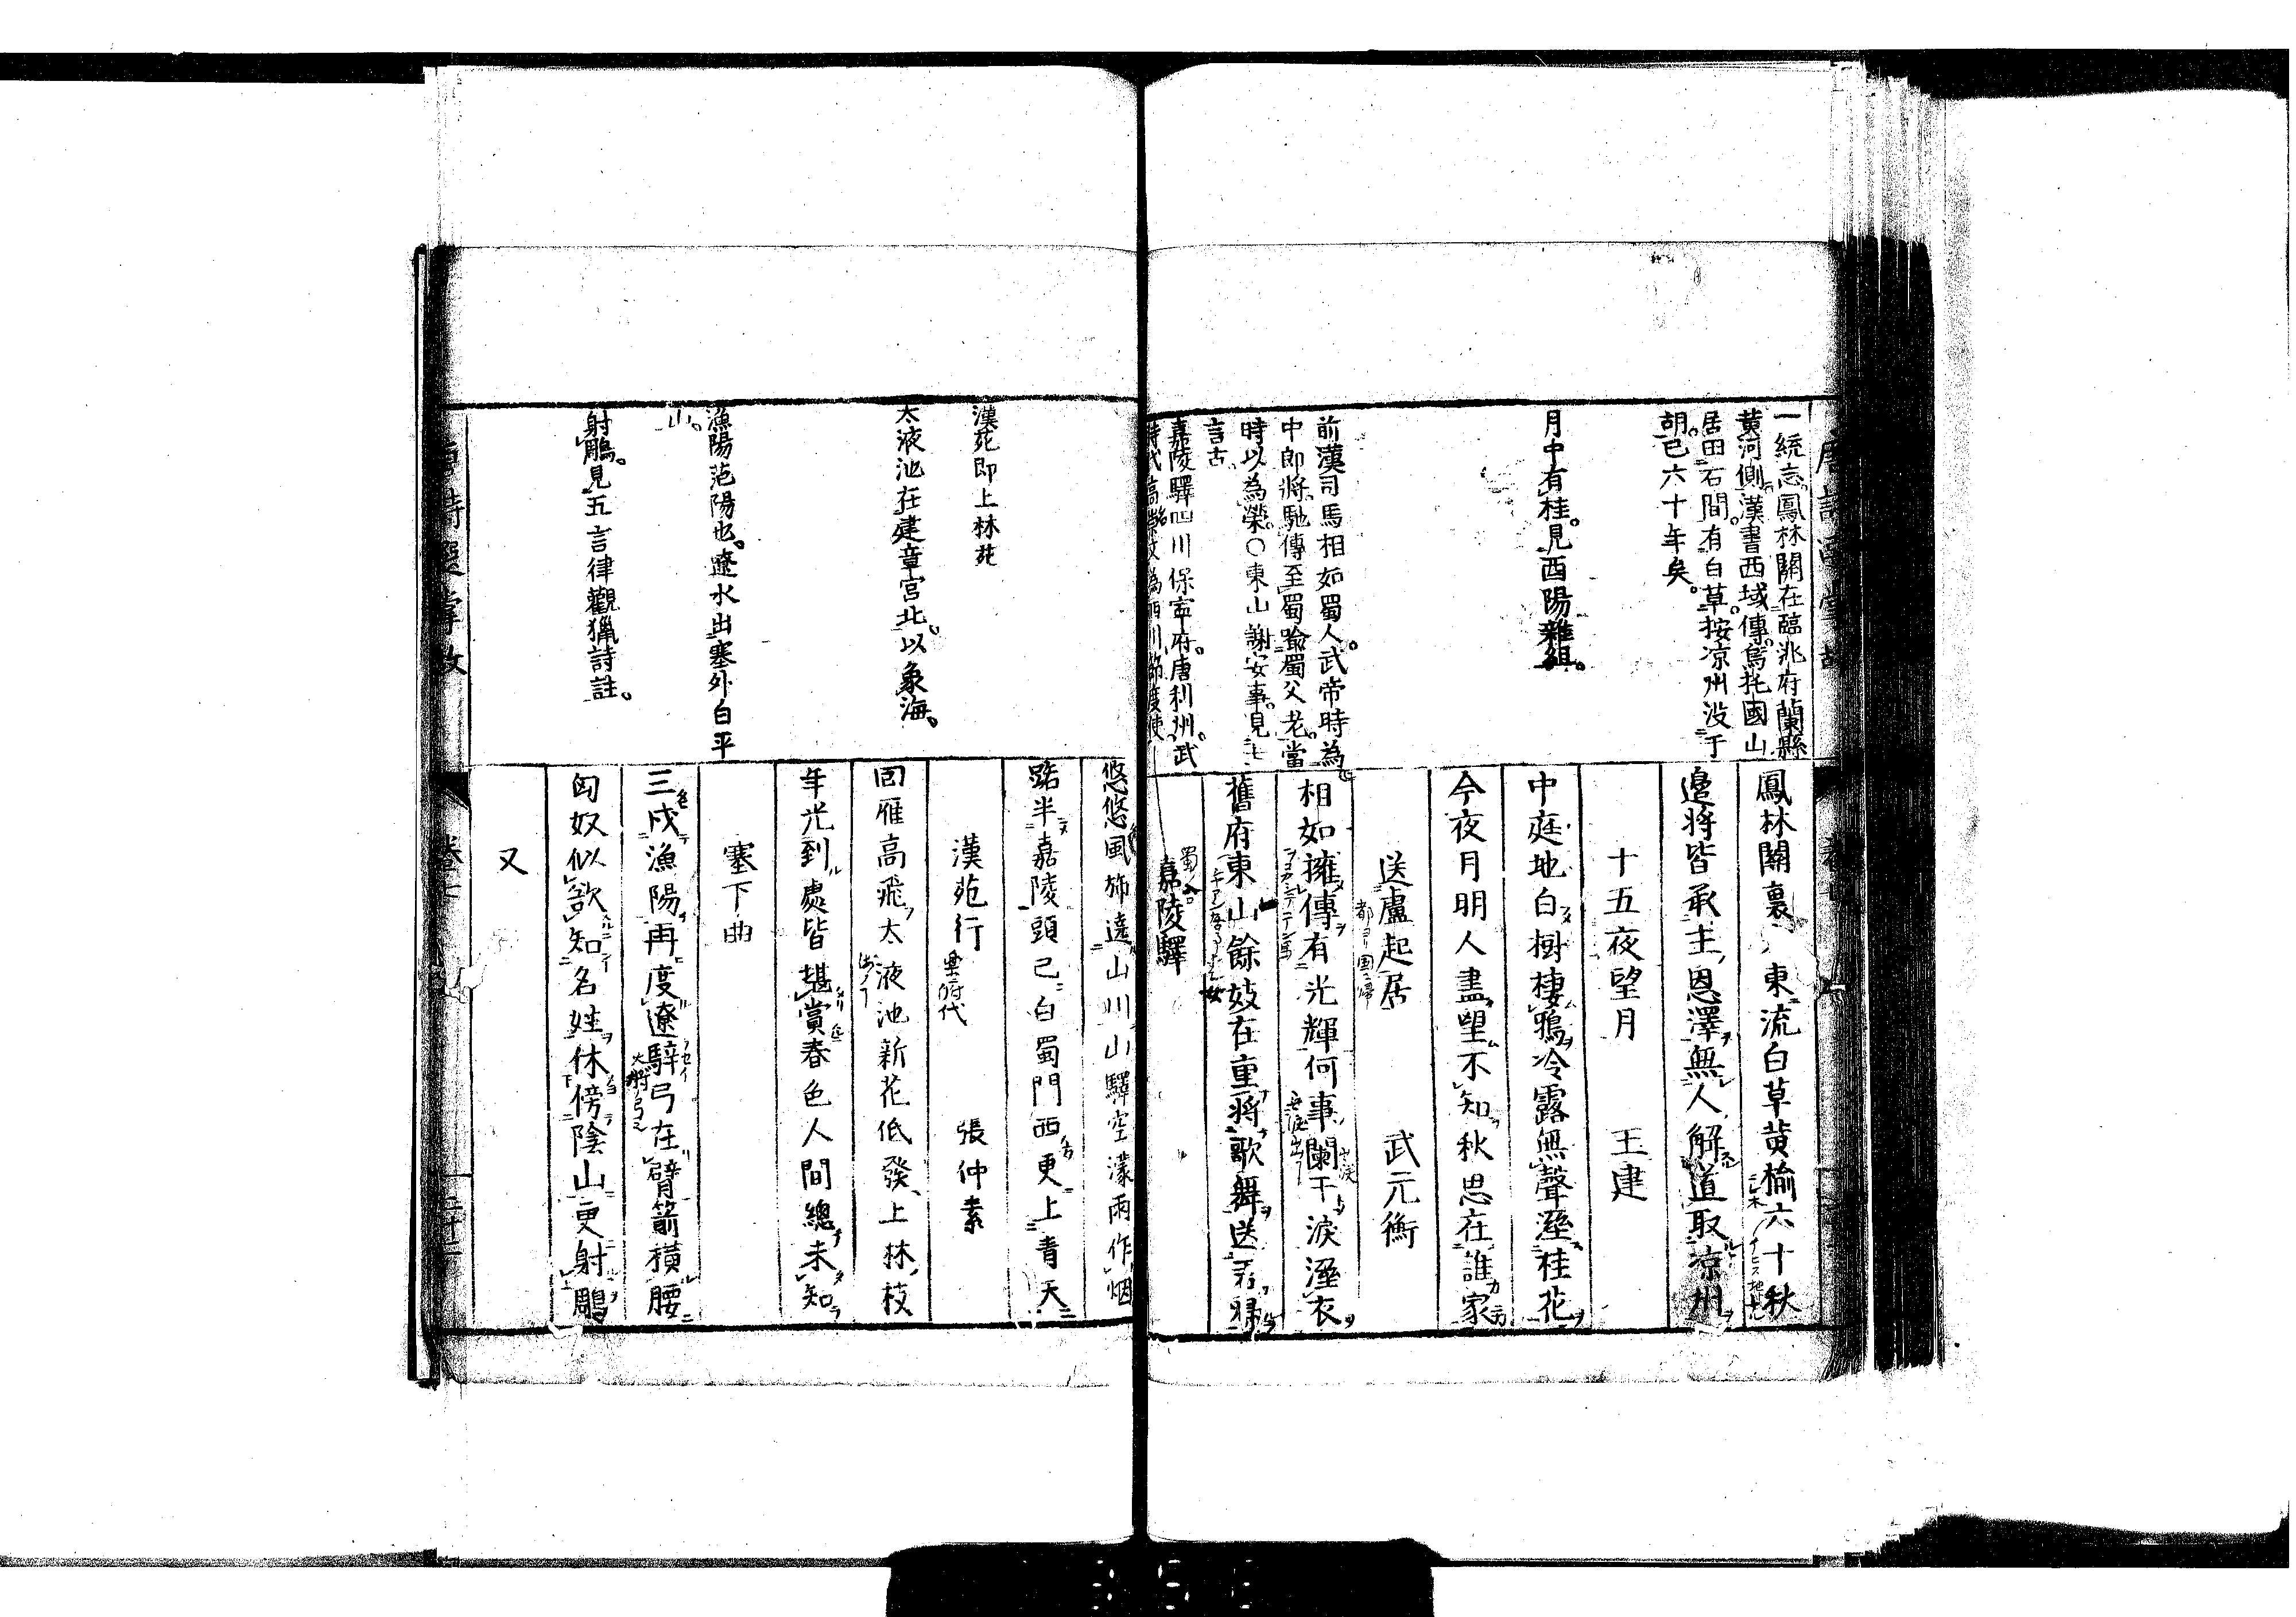 一統志鳳林關在臨洮府蘭縣
黃河側漢書西域傳烏托國山
居田石間有白草按凉州没于
胡已六十年矣
月中有桂見酉陽雜俎
前漢司馬相如蜀人武帝時為
中郎將馳傳至蜀喩蜀父老當
時以為榮○東山謝安事見七
言古
嘉陵驛四川保寧府唐利州武
鳳林關裏水東流白草黃楡六十秋
邉將皆承主恩澤無人解道取凉州
十五夜望月 王建
中庭地白樹棲鴉冷露無聲溼桂花
今夜月明人盡望不知秋思在誰家
送盧起居 武元衡
相如擁傳有光輝何事闌干淚溼衣
舊府東山餘妓在重將歌舞送君歸
嘉陵驛
漢苑即上林苑
太液池在建章宮北以象海
漁陽范陽也遼水出塞外白平
山
射鵰見五言律觀獵詩註
悠悠風旆遶山川山驛空濛雨作烟
路半嘉陵頭已白蜀門西更上青天
漢苑行 張仲素
回雁高飛太液池新花低發上林枝
年光到處皆堪賞春色人間總未知
塞下曲
三戍漁陽再度遼騂弓在臂箭橫腰
匈奴似欲知名姓休傍陰山更射鵰
又